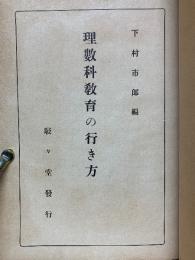 下村市郎編
理數科敎育の行き方
駸々堂發行